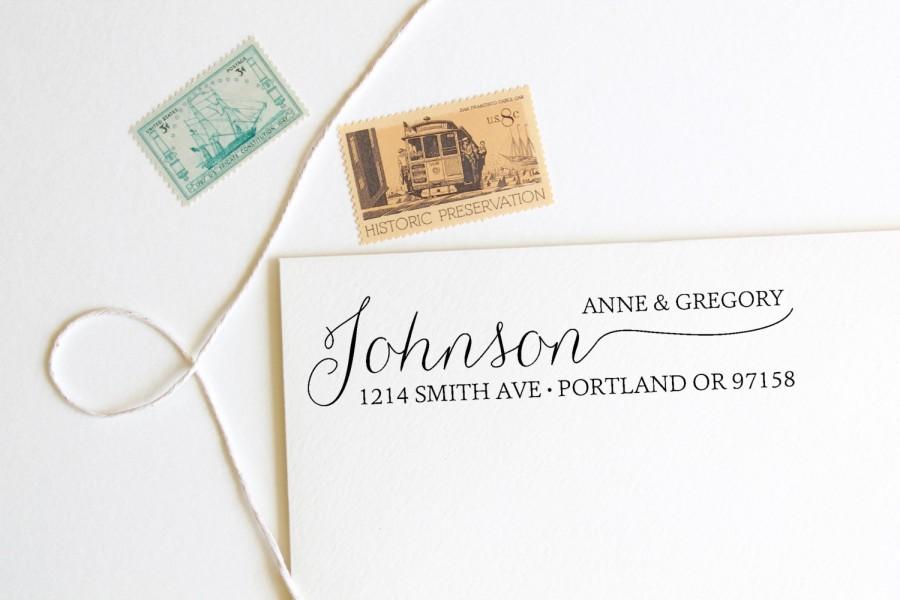 UNITED STATES POSTAGE
3¢ 3¢
U.S. FRIGATE CONSTITUTION
SAN FRANCISCO CABLE CAR
U.S. 8c
HISTORIC PRESERVATION
ANNE & GREGORY
Johnson
1214 SMITH AVE • PORTLAND OR 97158